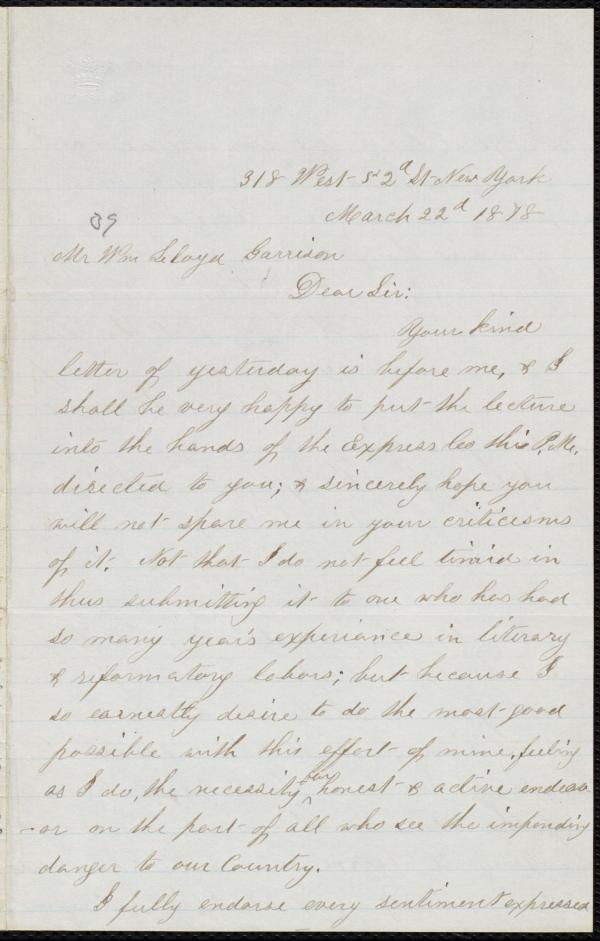 318 West 52d St New York
March 22d 1878
39
Mr Wm Lloyd Garrison
Dear Sir:
Your kind
letter of yesterday is before me, & I
shall be very happy to put the lecture
into the hands of the Express Co this P.M.
directed to you; & sincerely hope you
will not spare me in your criticisms
of it. Not that I do not feel timid in
thus submitting it to one who has had
so many year's experiance in literary
& reformatory labors; but because I
so earnestly desire to do the most good
possible with this effort of mine, feeling
as I do, the necessity for honest & active endeav
-or on the part of all who see the impending
danger to our Country.
I fully endorse every sentiment expressed